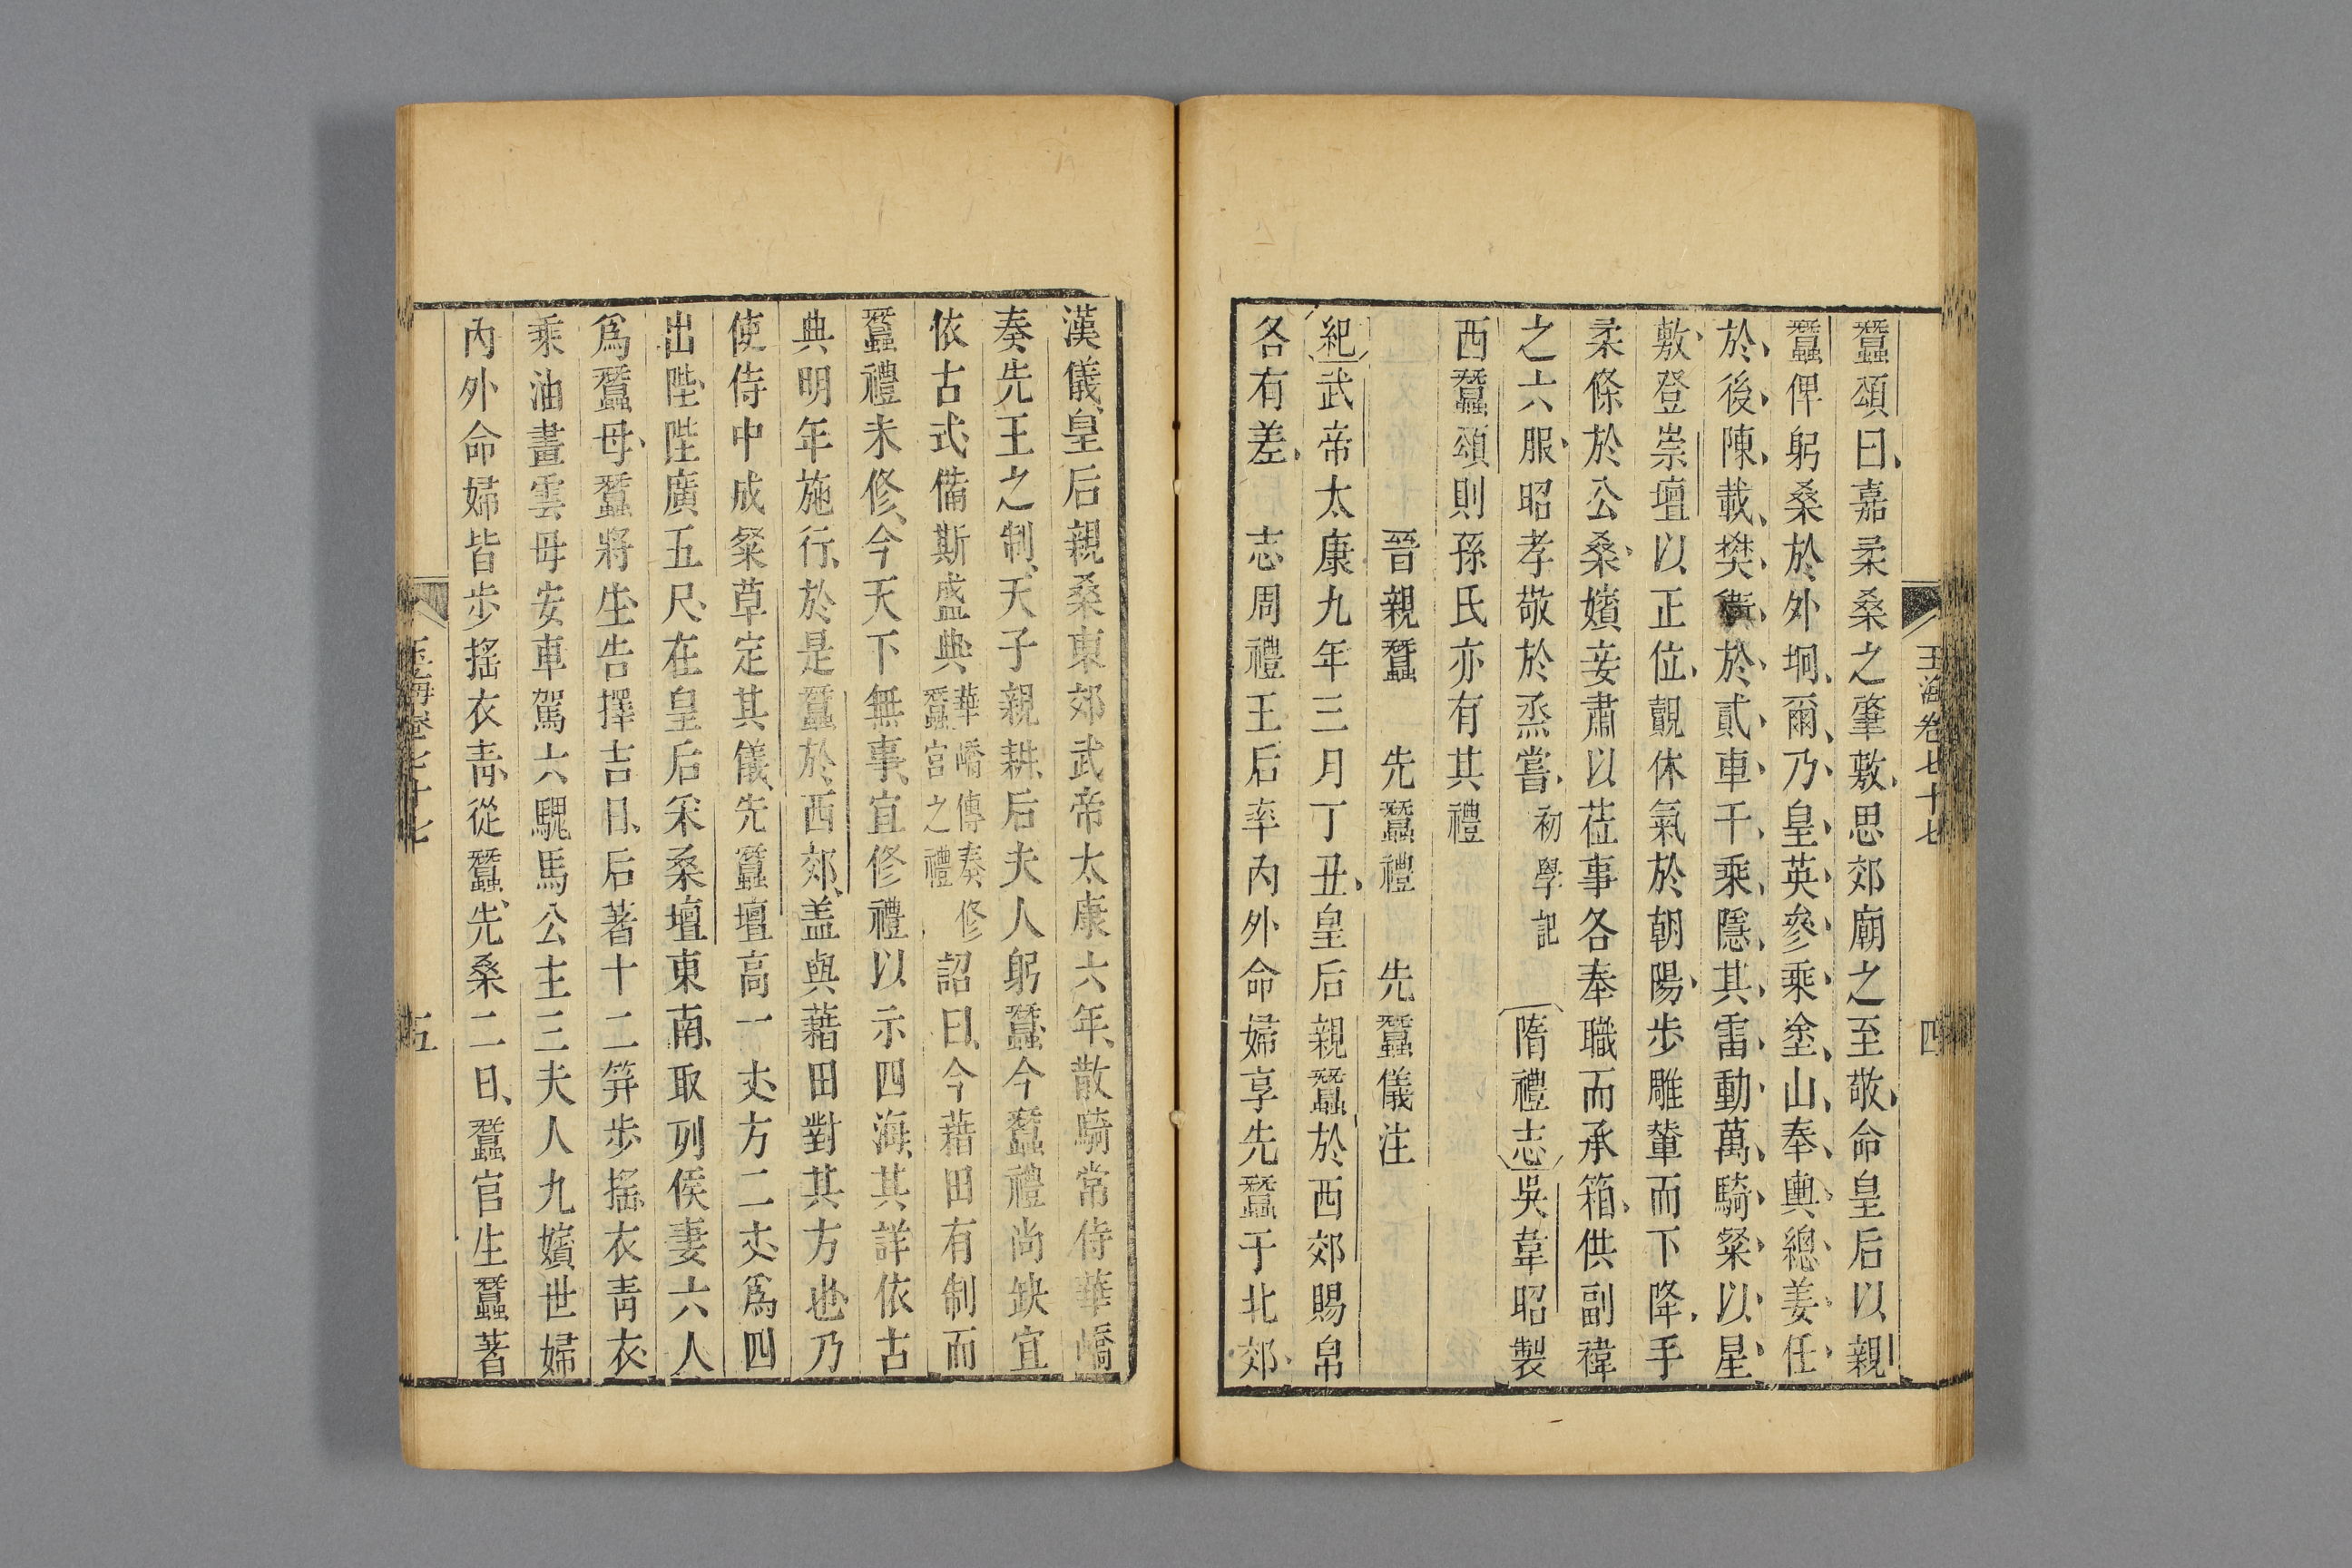 玉海卷七十七 四
蠶頌曰嘉柔桑之肇敷思郊廟之至敬命皇后以親
蠶俾躬桑於外坰爾乃皇英參乘塗山奉輿總姜任
於後陳載樊衞於貳車千乘隱其雷動萬騎粲以星
敷登崇壇以正位覿休氣於朝陽步雕輦而下降手
柔條於公桑嬪妾肅以莅事各奉職而承箱供副褘
之六服昭孝敬於烝嘗初學記 隋禮志吳韋昭製
西蠶頌則孫氏亦有其禮
晉親蠶 先蠶禮 先蠶儀注
紀武帝太康九年三月丁丑皇后親蠶於西郊賜帛
各有差 志周禮王后率內外命婦享先蠶于北郊
漢儀皇后親桑東郊武帝太康六年散騎常侍華嶠
奏先王之制天子親耕后夫人躬蠶今蠶禮尚缺宜
依古式備斯盛典華嶠傳奏修蠶宮之禮詔曰今藉田有制而
蠶禮未修今天下無事宜修禮以示四海其詳依古
典明年施行於是蠶於西郊盖與藉田對其方也乃
使侍中成粲草定其儀先蠶壇高一丈方二丈爲四
出陛陛廣五尺在皇后采桑壇東南取列侯妻六人
爲蠶母蠶將生告擇吉日后著十二笄步搖衣青衣
乘油畫雲母安車駕六騩馬公主三夫人九嬪世婦
內外命婦皆步搖衣青從蠶先桑二日蠶官生蠶著
玉海卷七十七 五